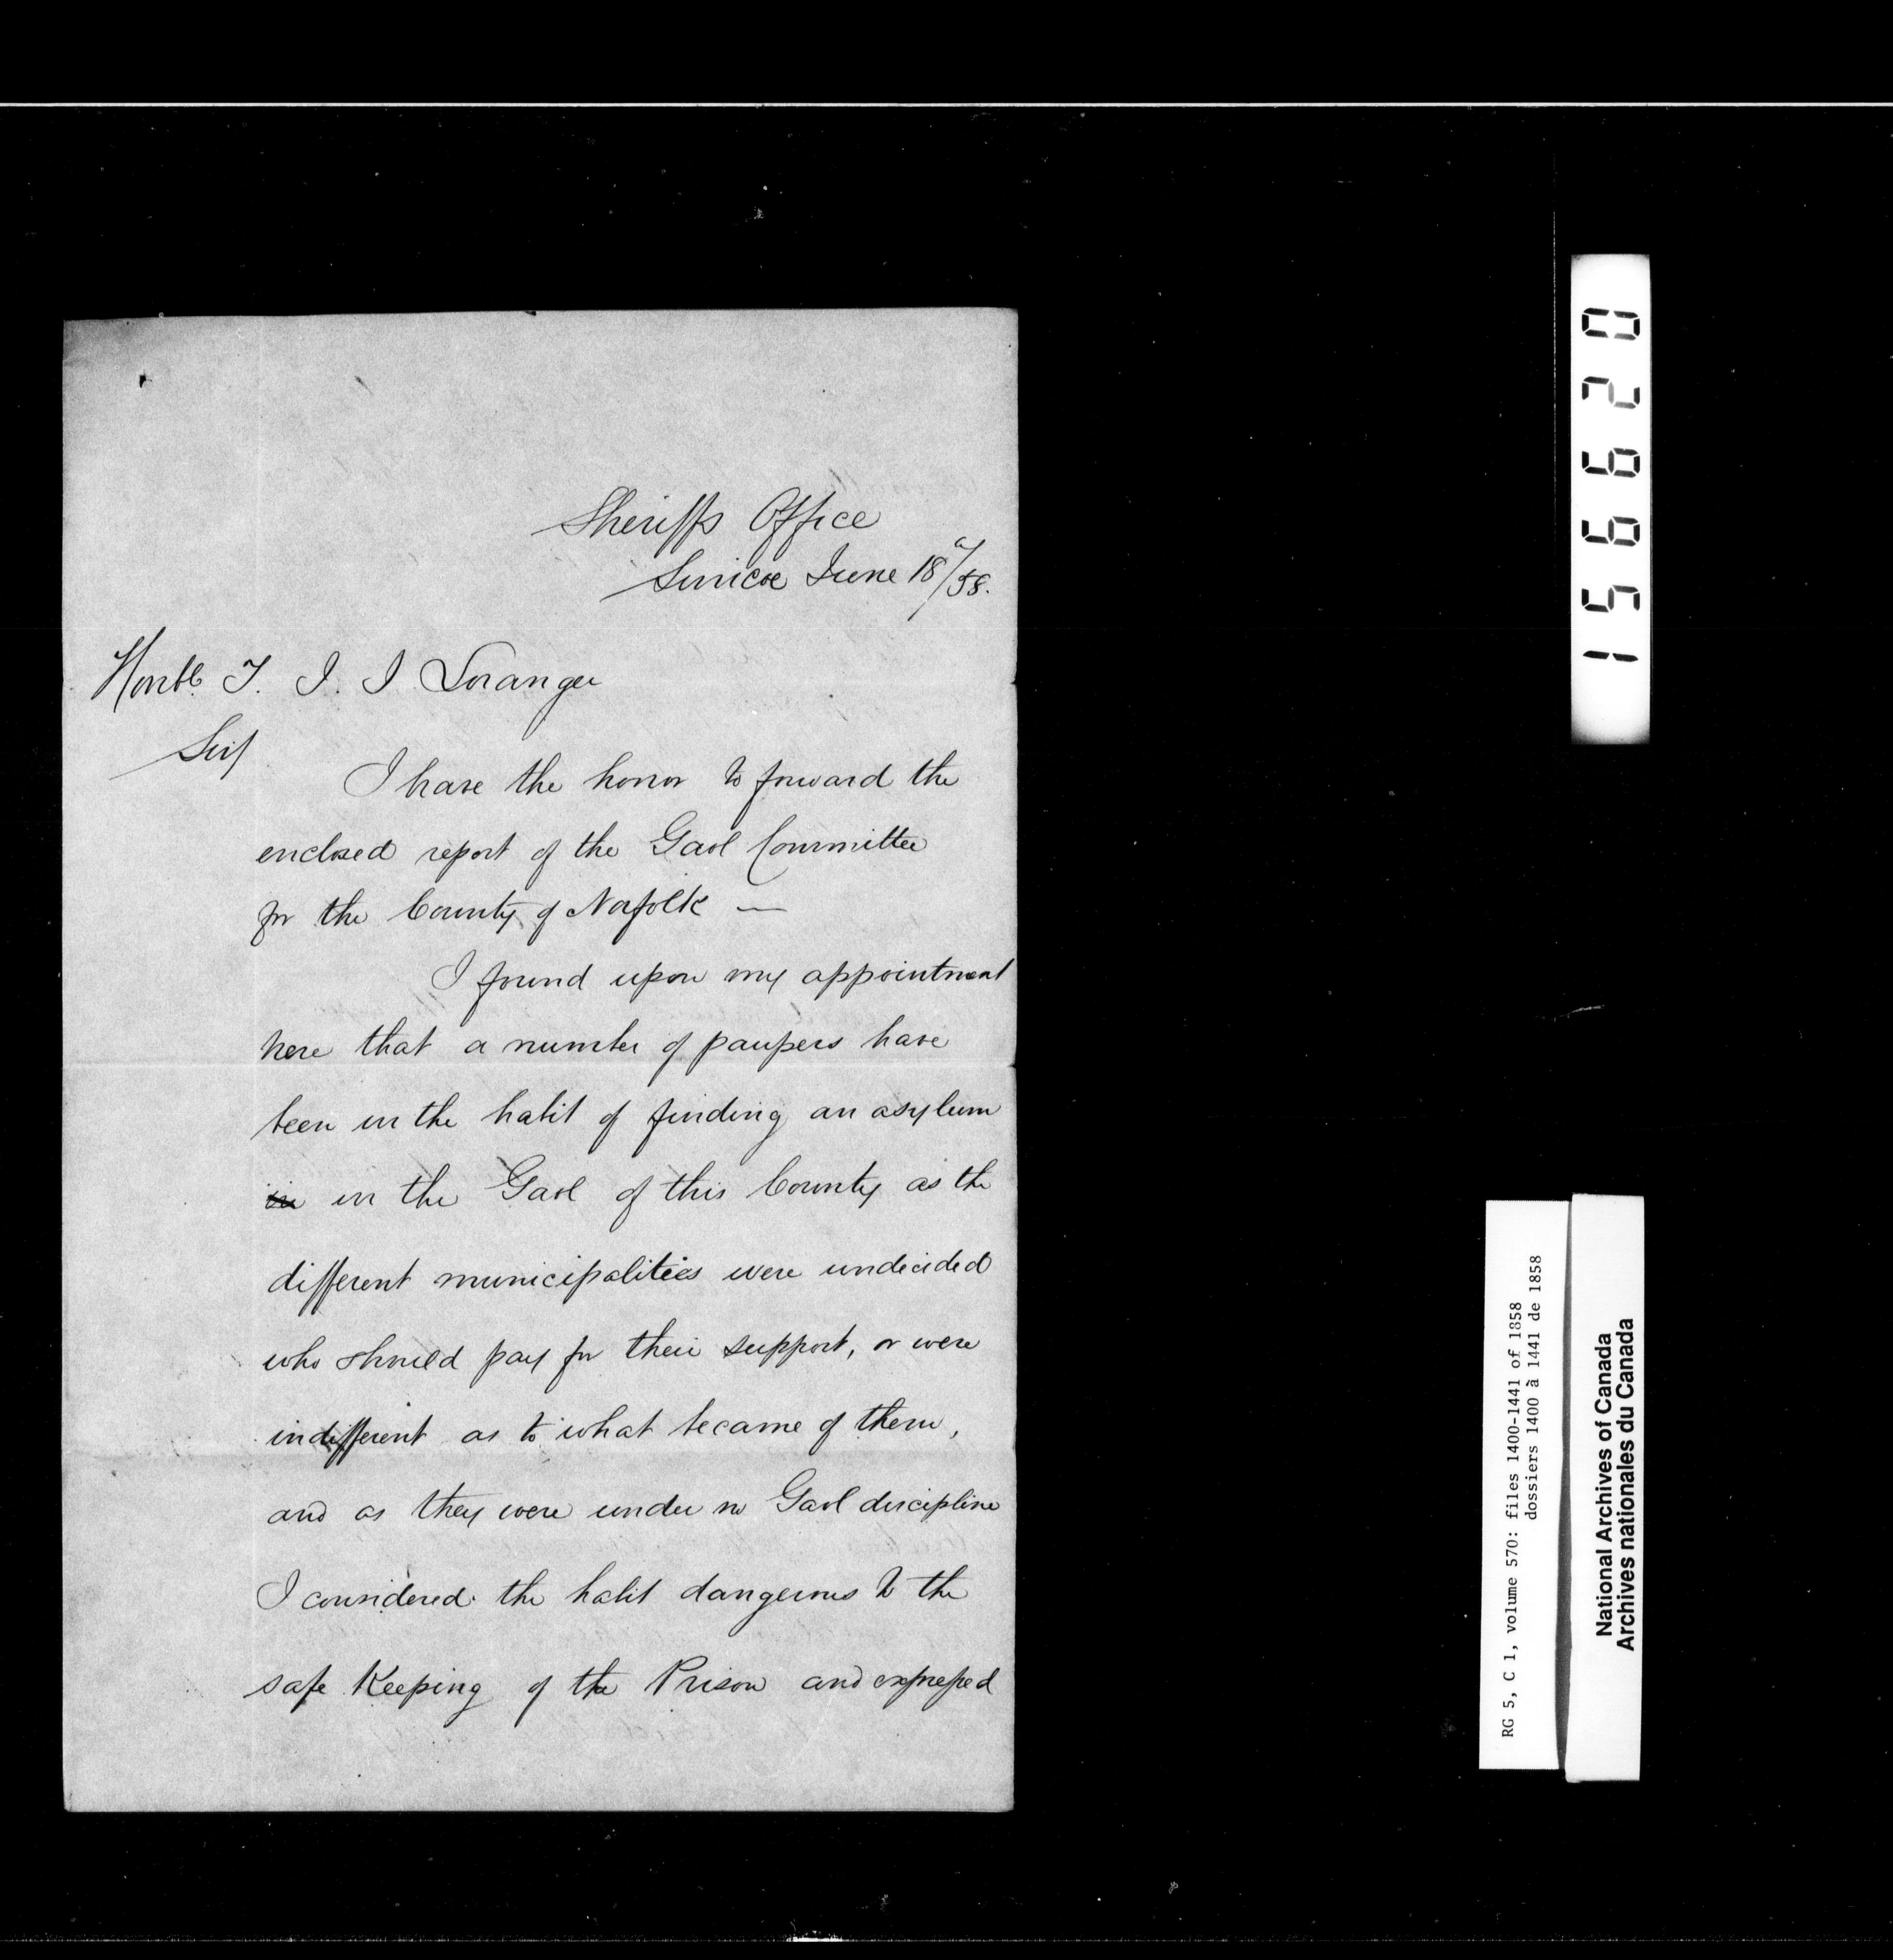 Sheriffs Office
Simcoe June 18/58.
Honble T. J. J. Loranger
Sir/
I have the honor to forward the
enclosed report of the Gaol Committee
for the County of Norfolk —
I found upon my appointment
here that a number of paupers have
been in the habit of finding an asylum
in in the Gaol of this County as the
different municipalities were undecided
who should pay for their support, or were
indifferent as to what became of them,
and as they were under no Gaol discipline
I considered the habit dangerous to the
safe Keeping of the Prison and expressed
156620
RG 5, C 1, volume 570: files 1400-1441 of 1858
dossiers 1400 à 1441 de 1858
National Archives of Canada
Archives nationales du Canada